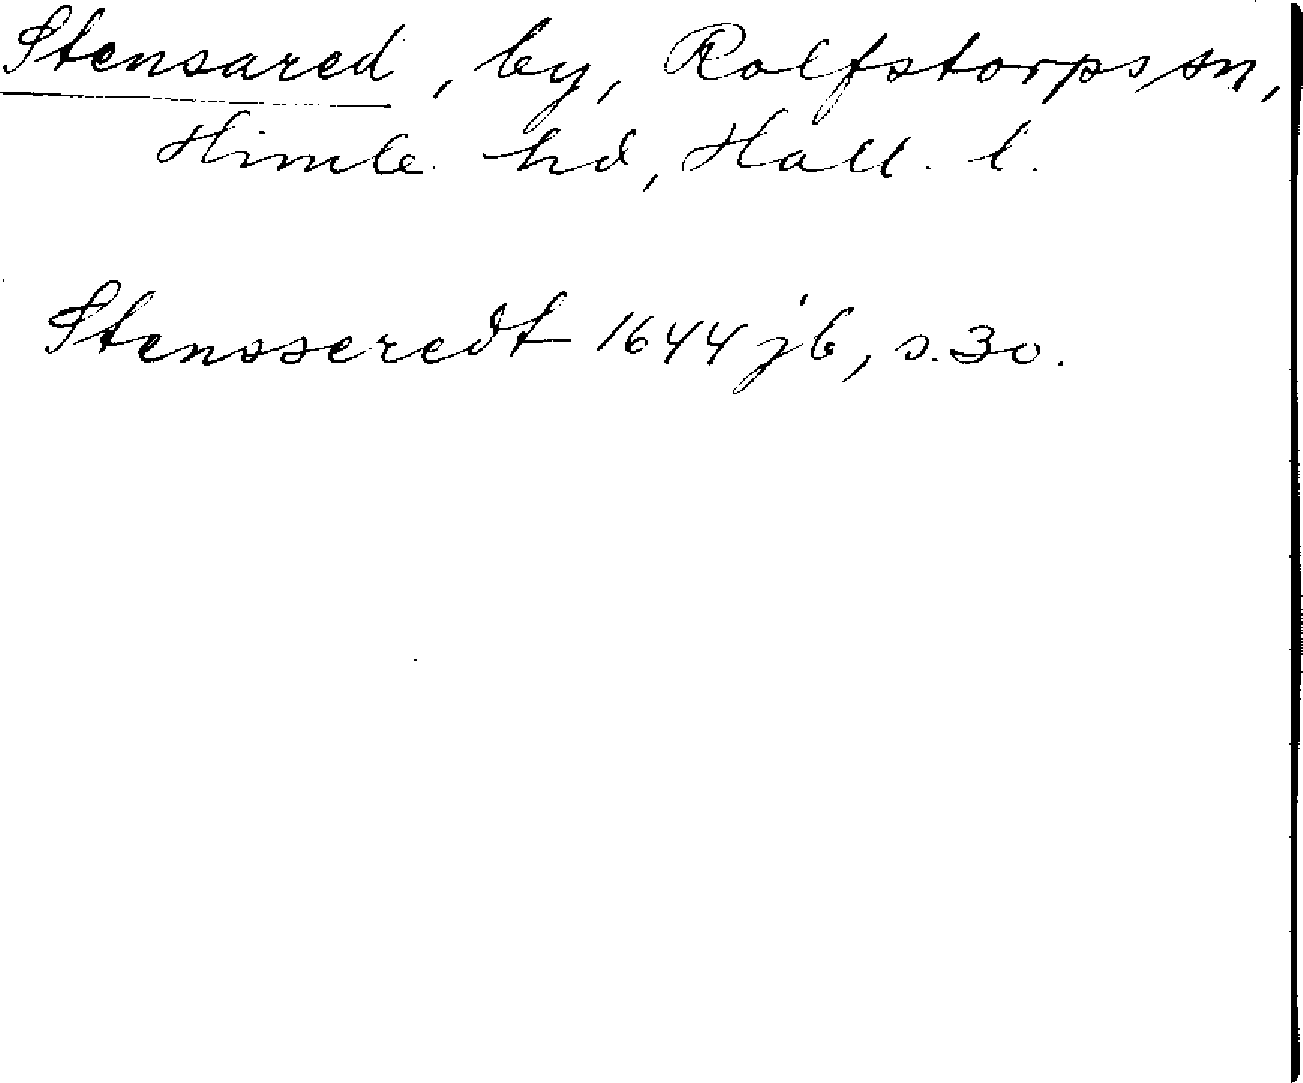 Stensared, by, Rolfstorps sn,
Himle hd, Hall. l.
Stensseredt 1644 jb, s. 30.